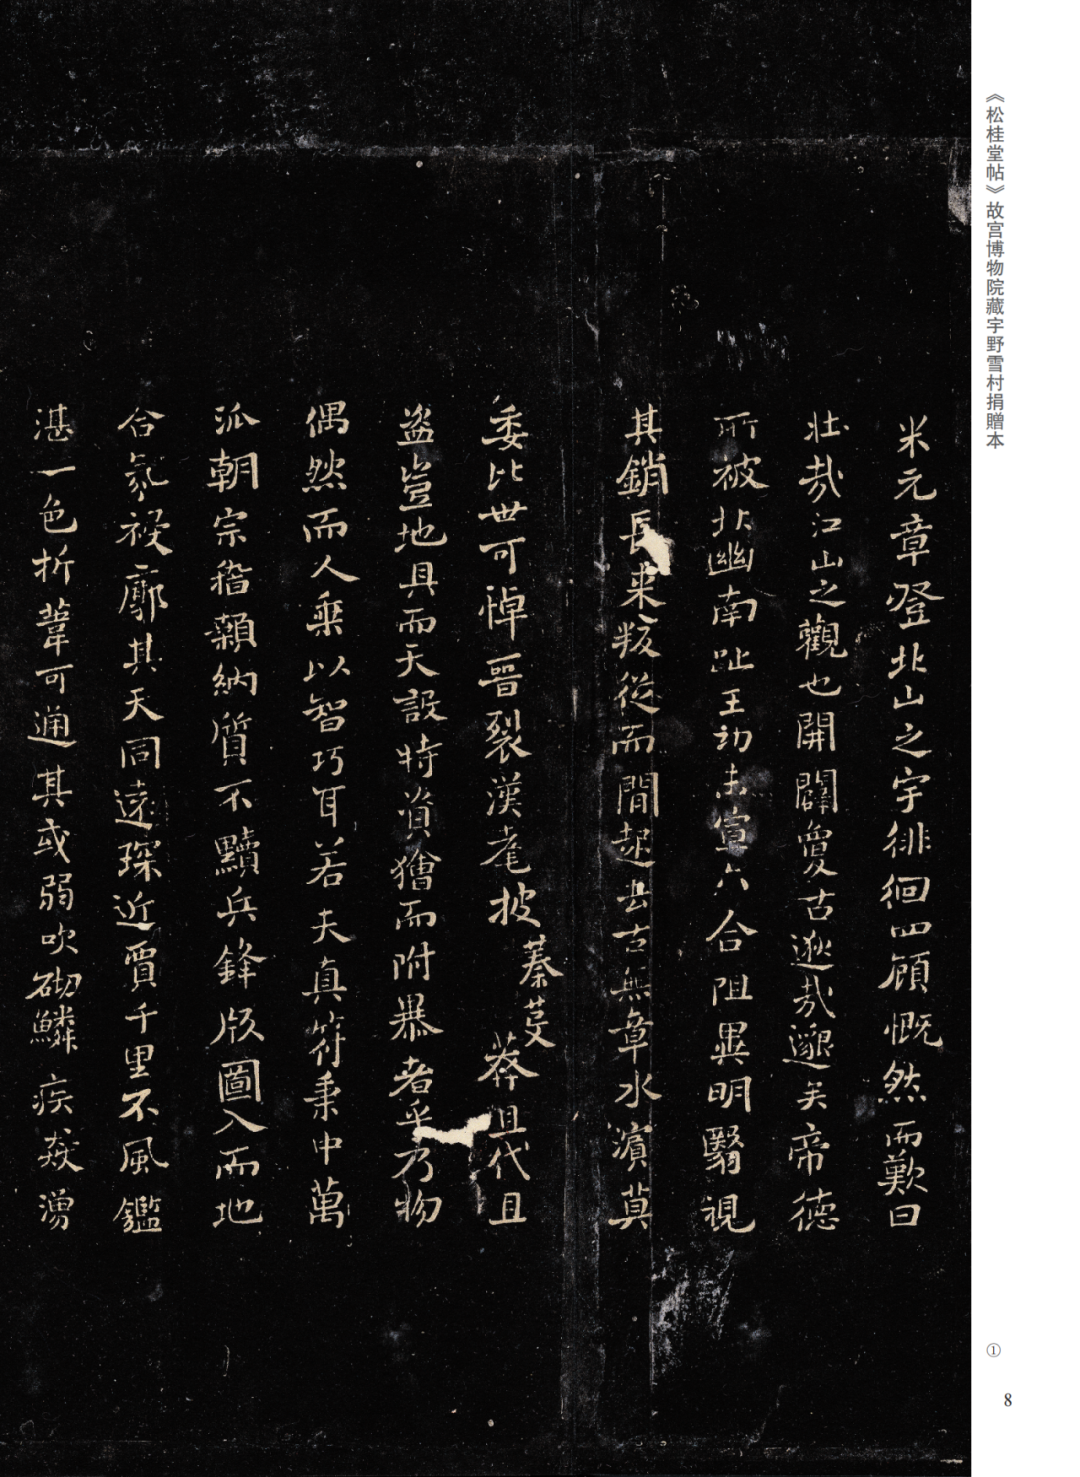 《松桂堂帖》故宫博物院藏宇野雪村捐贈本
米元章登北山之宇徘徊四顧慨然而歎曰
壯哉江山之觀也開闢爰古逖哉邈矣帝德
所被北幽南趾王功未宣六合阻異明翳視
其銷長来叛從而間起去古無章水濱莫
委比世可悼晋裂漢耄披
蓁芟
莽俎代且
盜豈地具而天設特資獪而附暴者乎乃物
偶然而人乗以智巧耳若夫真符秉中萬
派朝宗稽顙納質不黷兵鋒版圖入而地
合氛祲廓其天同遠琛近賈千里不風鑑
湛一色折葦可通其或弱吹砌鱗疾焱湧
①
8